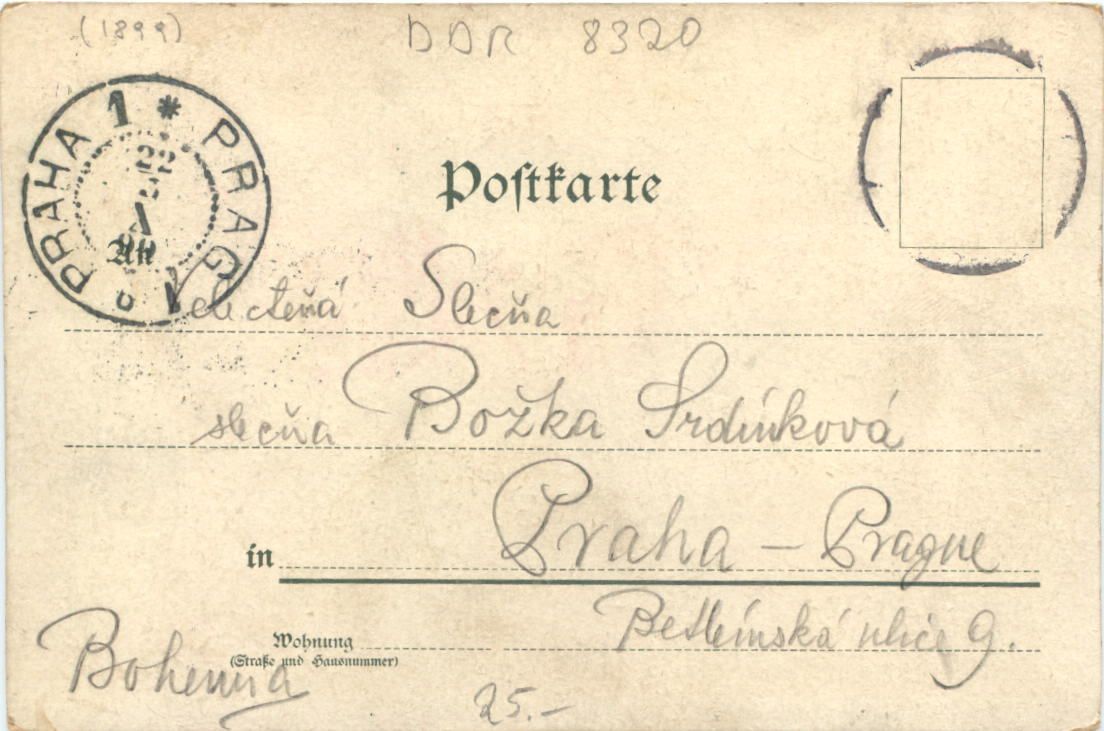 (1899) DDR 8320
PRAHA 1 * PRAG 1
Postkarte
An
Velectená Slečna
slečna Božka Srdínková
in Praha – Prague
Betlémská ulice 9.
Wohnung
(Straße und Hausnummer)
Bohemia
25.-